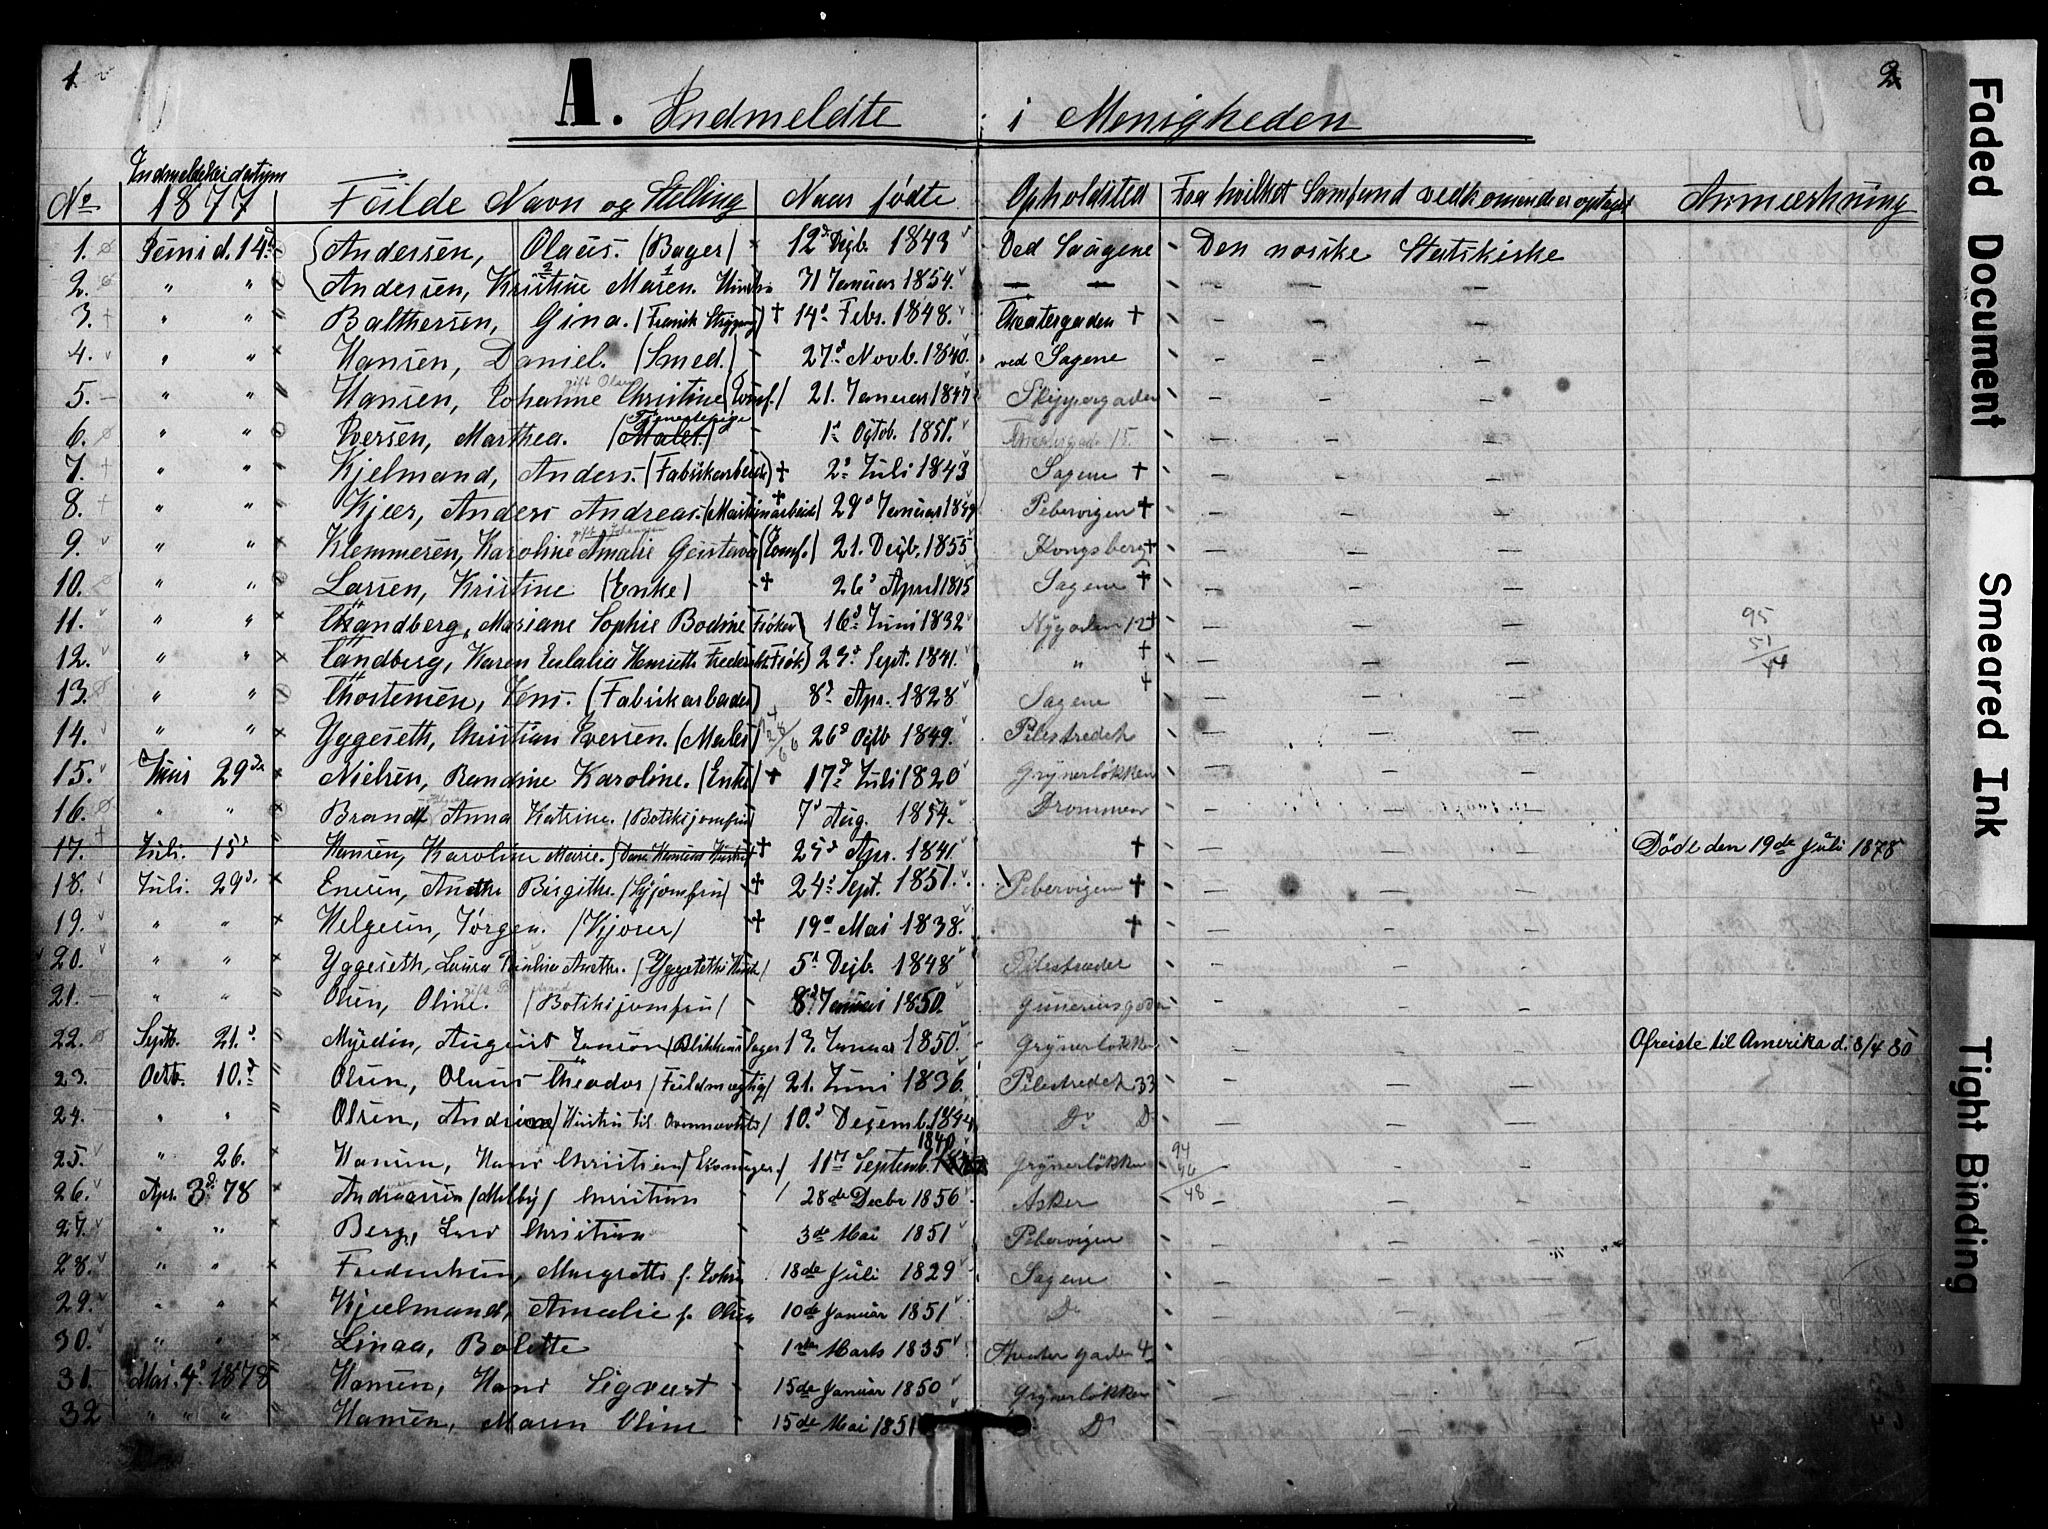 1 2
A. Indmeldte i Menigheden
No. Indmeldelsesdatum 1877 Fulde Navn og Stilling Naar fødte Opholdsted Fra hvilket Samfund vedkommende er optaget Anmærkning
1. Juni d. 14d Andersen, Olaus. (Bager) 12d Dejb. 1843 Ved Saugene Den norske Statskirke
2. " " Andersen, Kristine Maren. Hustru 31 Januar 1854. — — — — —
3. " " Balthersen, Gina. † 14d Febr. 1848. Theatergaden † — — —
4. " " Hansen, Daniel. (Smed.) 27d Novb. 1840. ved Sagene — — —
5. " " Hansen, Johanne Christine (Jomf.) gift Olsen 21. Januar 1847 Skippergaden — — —
6. " " Iversen, Marthea. (Maler.) Tjenestepige 1d Ogtob. 1851. Theatergad. 15. — — —
7. " " Kjelmand, Anders. (Fabrikarbeid) † 2d Juli 1843 Sagene † — — —
8. " " Kjær, Anders Andreas. (Maskinarbeid) † 29d Januar 1849 Pebervigen † — — —
9. " " Klemmesen, Karoline Amalie Gustava (Jomf.) gift Johansen 21. Dejb. 1855 Kongsberg † — — —
10. " " Larsen, Kristine (Enke) † 26d April 1815 Sagene † — — —
11. " " Thandberg, Mariane Sophie Bodine Frøken) 16d Juni 1832 Nygaden 12 † — — — 95
12. " " Tandberg, Karen Eulalia Henriette Frederikk. Frøk) 23d Sept. 1841. " † — — — 51/44
13. " " Thostensen, Jens. (Fabrikarbeder) 8d Apr. 1828 Sagene † — — —
14. " " Yggeseth, Christian Iversen. (Maler) 26d Ojtb 1849. Pilestredet — — —
15. Juni 29de Nielsen, Randine Karoline. (Enke) † 17d Juli 1820 Grynerløkken — — —
16. " " Brandt, Anna Katrine. (Botiksjomfru) 7d Aug. 1854. Drammen — — —
17. Juli. 15d Hansen, Karoline Marie. † 25d Apr. 1841. † Døde den 19de Juli 1878
18. Juli. 29d. Enesen, Anethe Birgithe. (Syjomfru) † 24d Sept. 1851. Pebervigen † — — —
19. " " Helgesen, Jørgen. (Kjører) † 19d Mai 1838. † — — —
20. " " Yggeseth, Laura Paulina Anethe. (Yggeseths Hust) 5d Dejb. 1848 Pilestrædet — — —
21. " " Olsen, Oline. (Botiksjomfru) 8d Januar 1850. Gunerius gaden — — —
22. Septb. 21.d Myrdin, August Jensen (Blikkenslager 13. Januar 1850. Grynerløkken — — — Afreiste til Amerika d. 8/4 80
23. Octb. 10.d Olsen, Olaus Theodor (Fuldmægtig) 21. Juni 1836. Pilestredet 33 — — —
24. " " Olsen, Andrine (Hustru til Ovennævnte) 10.d Dezemb. 1844 Do Do — — —
25. " 26. Hansen, Hans Christian (Skomager.) 11te Septemb. 1840 Grynerløkken 94 44/48 — —
26. Apr. 3d 78 Andreassen (Melby) Christian 28de Decbr 1856 Asker — — —
27. " " Berg, Lars Christian 3de Mai 1851 Pebervigen — — —
28. " " Frederiksen, Margrethe f. Johns 18de Juli 1829 Sagene — — —
29. " " Kjælmand, Amalie f. Olsen 10de Januar 1851 Do — — —
30. " " Linaa, Bolette 1ste Marts 1835 Theater gaden 4 — — —
31. Mai. 4d 1878 Hansen, Hans Sigvart 15de Januar 1850 Grynerløkken — — —
32 " " " Hansen, Maren Oline 15de Mai 1851 Do — — —
Faded Document
Smeared Ink
Tight Binding